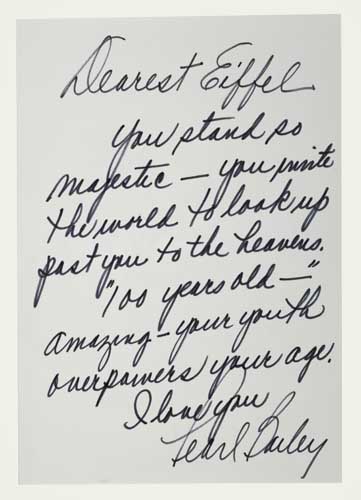 Dearest Eiffel
You stand so
majestic — you invite
the world to look up
past you to the heavens.
"100 years old —"
amazing - your youth
overpowers your age.
I love you
Pearl Bailey